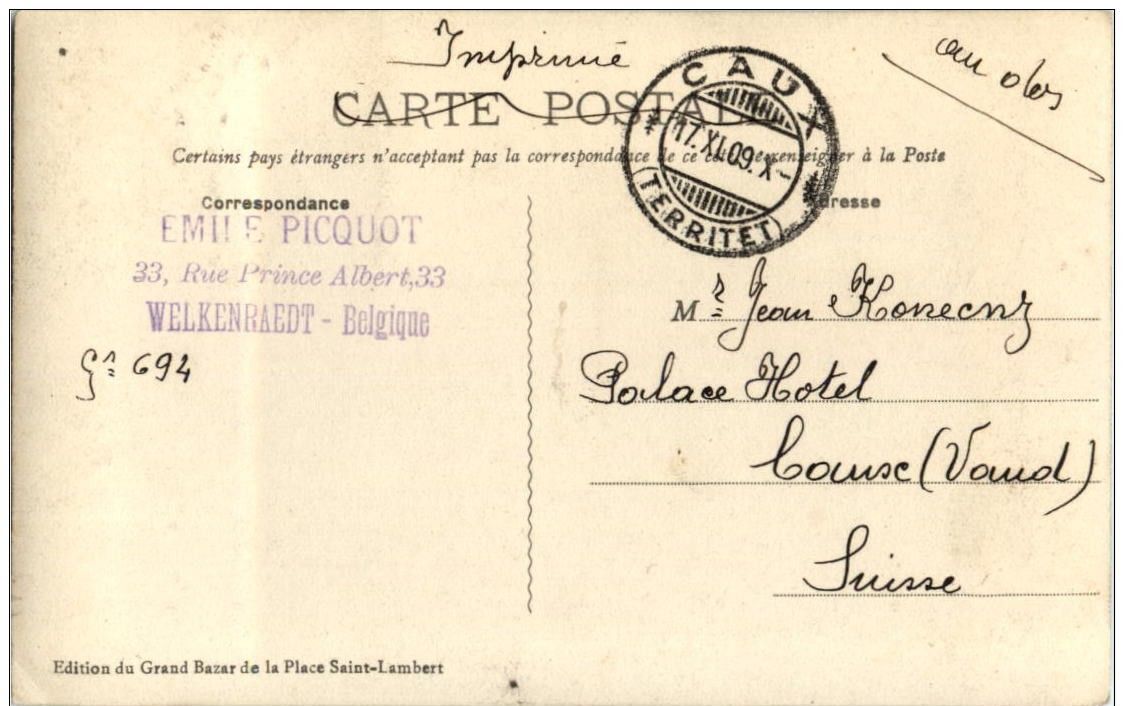 Imprimé
au dos
CARTE POSTALE
Certains pays étrangers n'acceptant pas la correspondance de ce côté, se renseigner à la Poste
CAUX
17.XI.09.X-
(TERRITET)
Correspondance
Adresse
EMILE PICQUOT
33, Rue Prince Albert, 33
WELKENRAEDT - Belgique
694
Mr Jean Konecny
Palace Hotel
Caux (Vaud)
Suisse
Edition du Grand Bazar de la Place Saint-Lambert